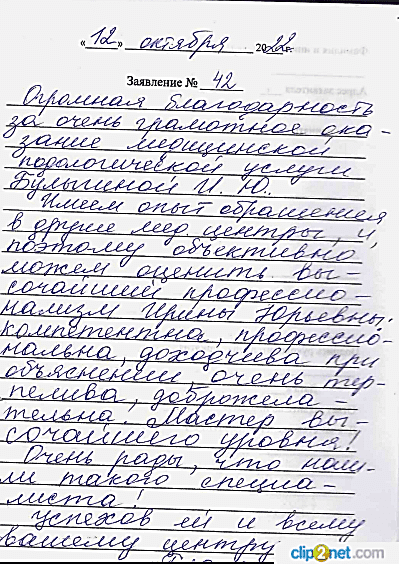 «12» октября 2022г.
Заявление № 42
Огромная благодарность
за очень грамотное ока-
зание медицинской
подологической услуги
Булыгиной И. Ю.
Имеем опыт обращения
в другие мед. центры, и,
поэтому объективно
можем оценить вы-
сочайший профессио-
нализм Ирины Юрьевны:
компетентна, профессио-
нальна, доходчива при
объяснении, очень тер-
пелива, доброжела-
тельна. Мастер вы-
сочайшего уровня!
Очень рады, что наш-
ли такого специа-
листа!
Успехов ей и всему
вашему центру
clip2net.com